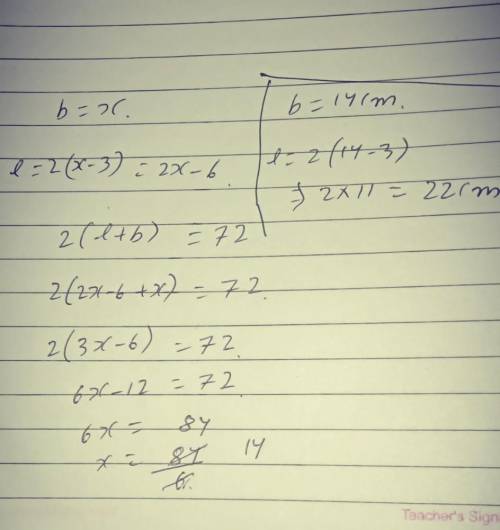 b = x.
l = 2(x-3) = 2x-6.
2(l+b) = 72
2(2x-6+x) = 72.
2(3x-6) = 72.
6x-12 = 72
6x = 84
x = 84/6 14
b = 14cm.
l = 2(14-3)
⇒ 2×11 = 22cm
Teacher's Sign